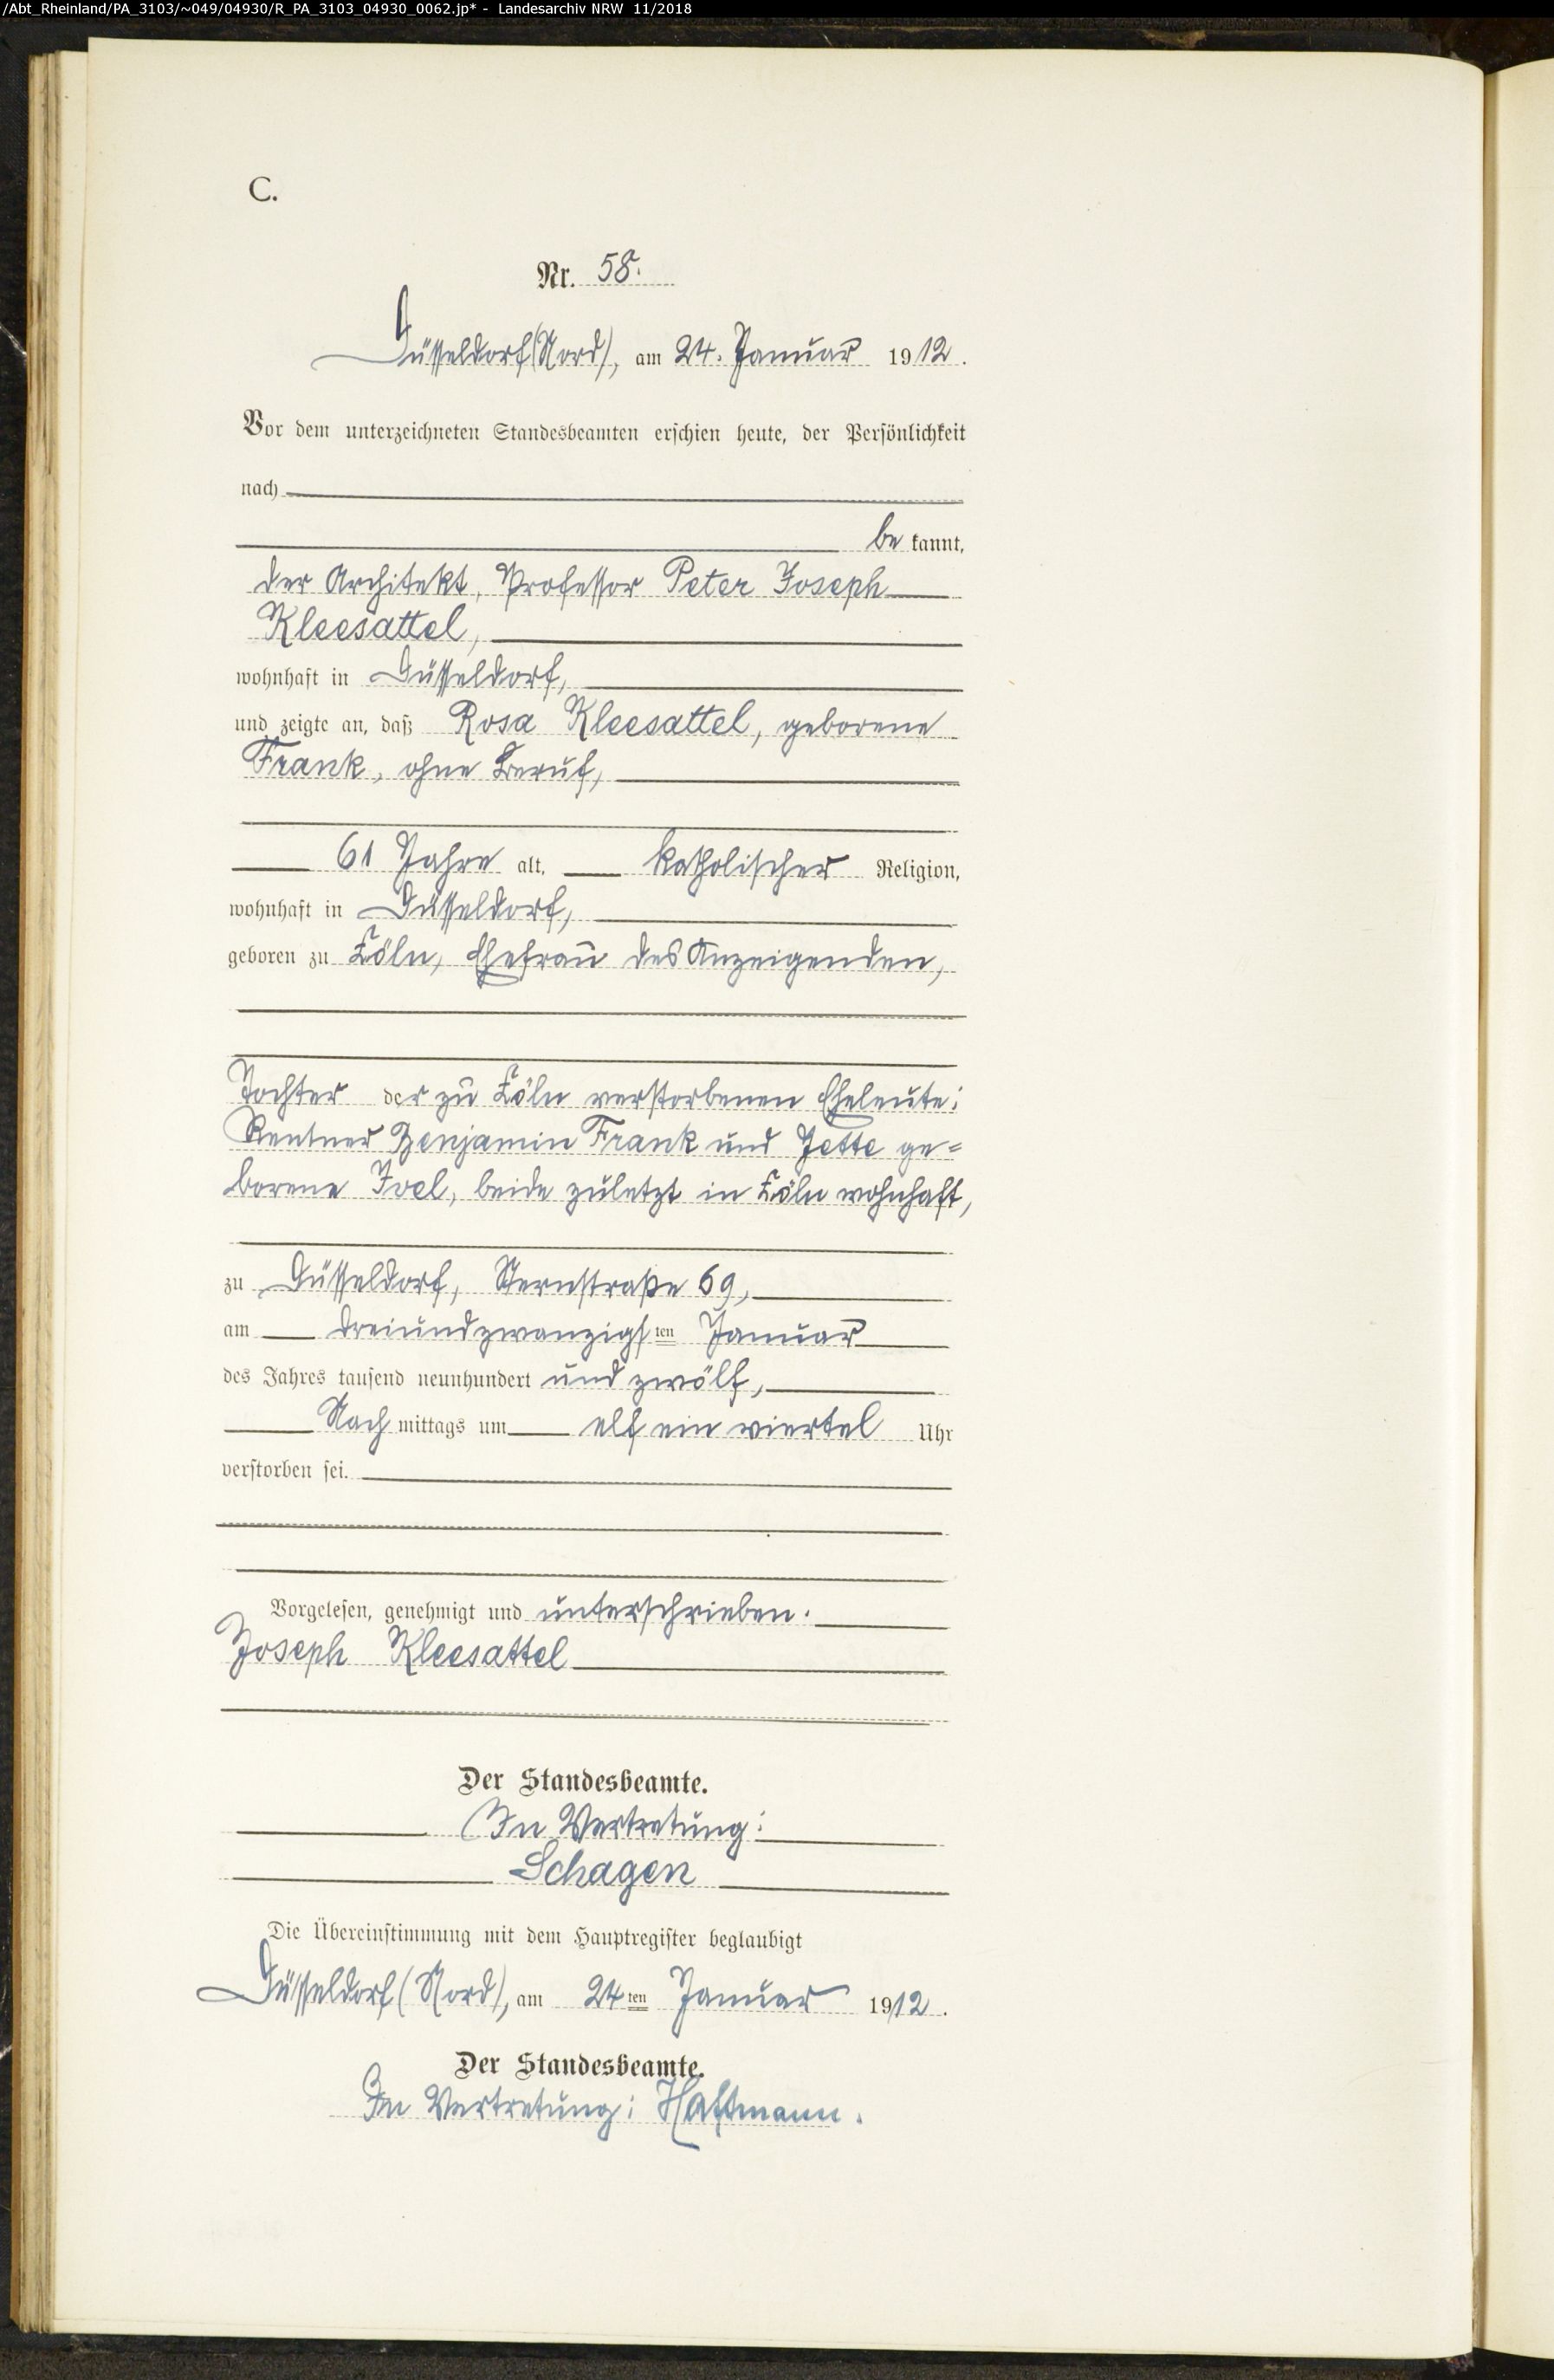 /Abt_Rheinland/PA_3103/~049/04930/R_PA_3103_04930_0062.jp* - Landesarchiv NRW 11/2018
C.
Nr. 58.
Düsseldorf (Nord), am 24. Januar 1912.
Vor dem unterzeichneten Standesbeamten erschien heute, der Persönlichkeit
nach
be kannt,
der Architekt, Professor Peter Joseph
Kleesattel,
wohnhaft in Düsseldorf,
und zeigte an, daß Rosa Kleesattel, geborene
Frank, ohne Beruf,
61 Jahre alt, katholischer Religion,
wohnhaft in Düsseldorf,
geboren zu Cöln, Ehefrau des Anzeigenden,
Tochter der zu Cöln verstorbenen Eheleute:
Rentner Benjamin Frank und Jette ge=
borene Joel, beide zuletzt in Cöln wohnhaft,
zu Düsseldorf, Sternstraße 69,
am dreiundzwanzigsten Januar
des Jahres tausend neunhundert und zwölf,
Nach mittags um elf ein viertel Uhr
verstorben sei.
Vorgelesen, genehmigt und unterschrieben.
Joseph Kleesattel
Der Standesbeamte.
In Vertretung:
Schagen
Die Übereinstimmung mit dem Hauptregister beglaubigt
Düsseldorf (Nord), am 24ten Januar 1912.
Der Standesbeamte.
In Vertretung: Haftmann.